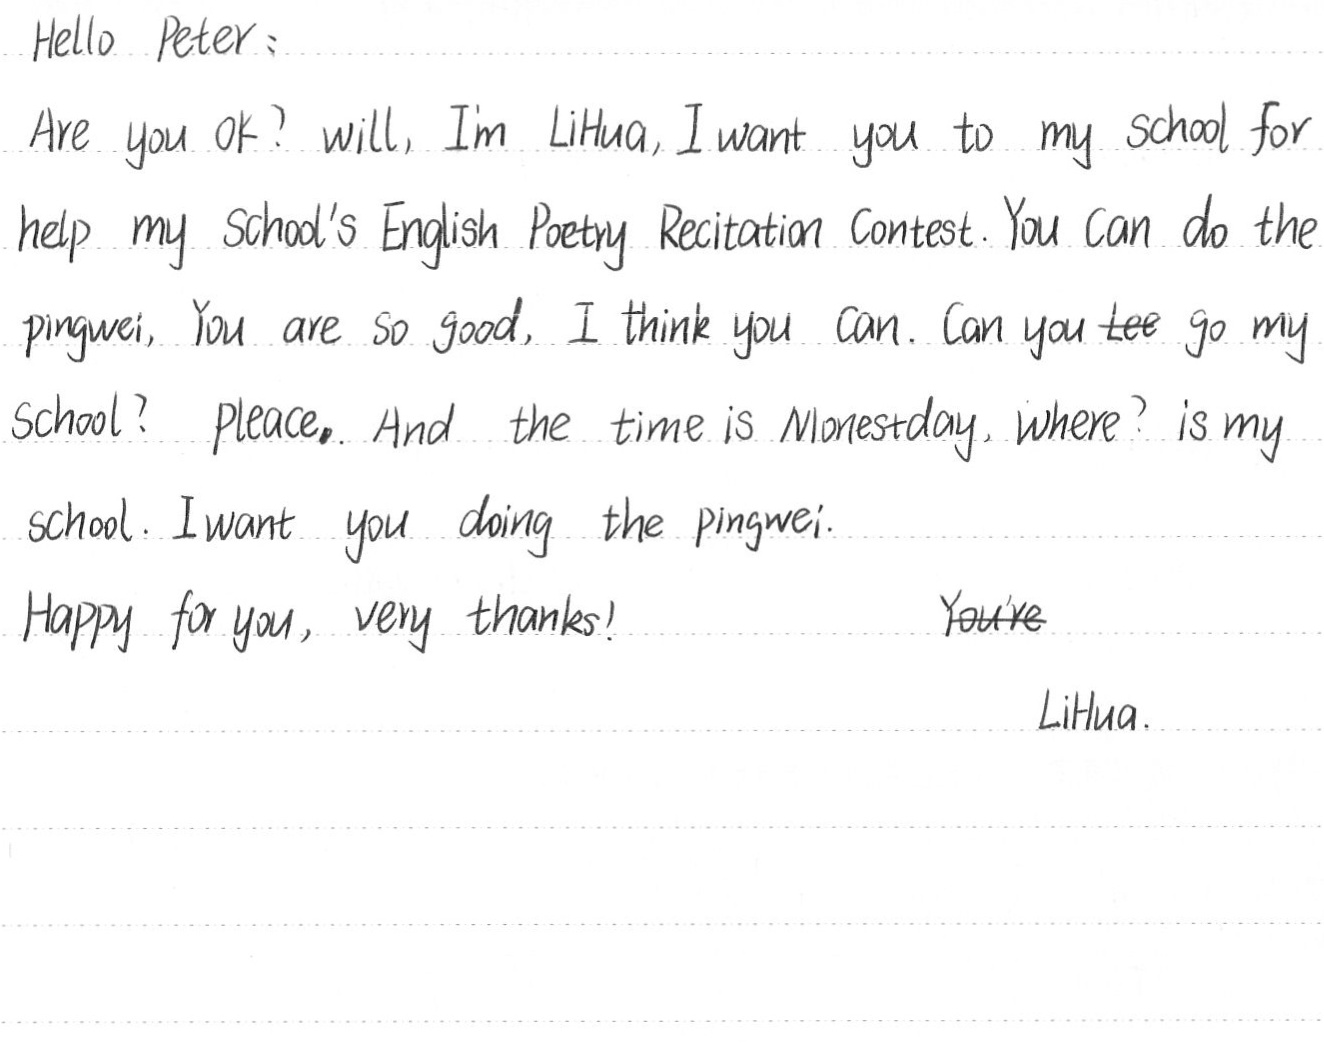 Hello Peter:
Are you OK? will, I'm LiHua, I want you to my school for
help my school's English Poetry Recitation Contest. You can do the
pingwei, You are so good, I think you can. Can you tee go my
school? pleace. And the time is Monestday, where? is my
school. I want you doing the pingwei.
Happy for you, very thanks! You're
LiHua.